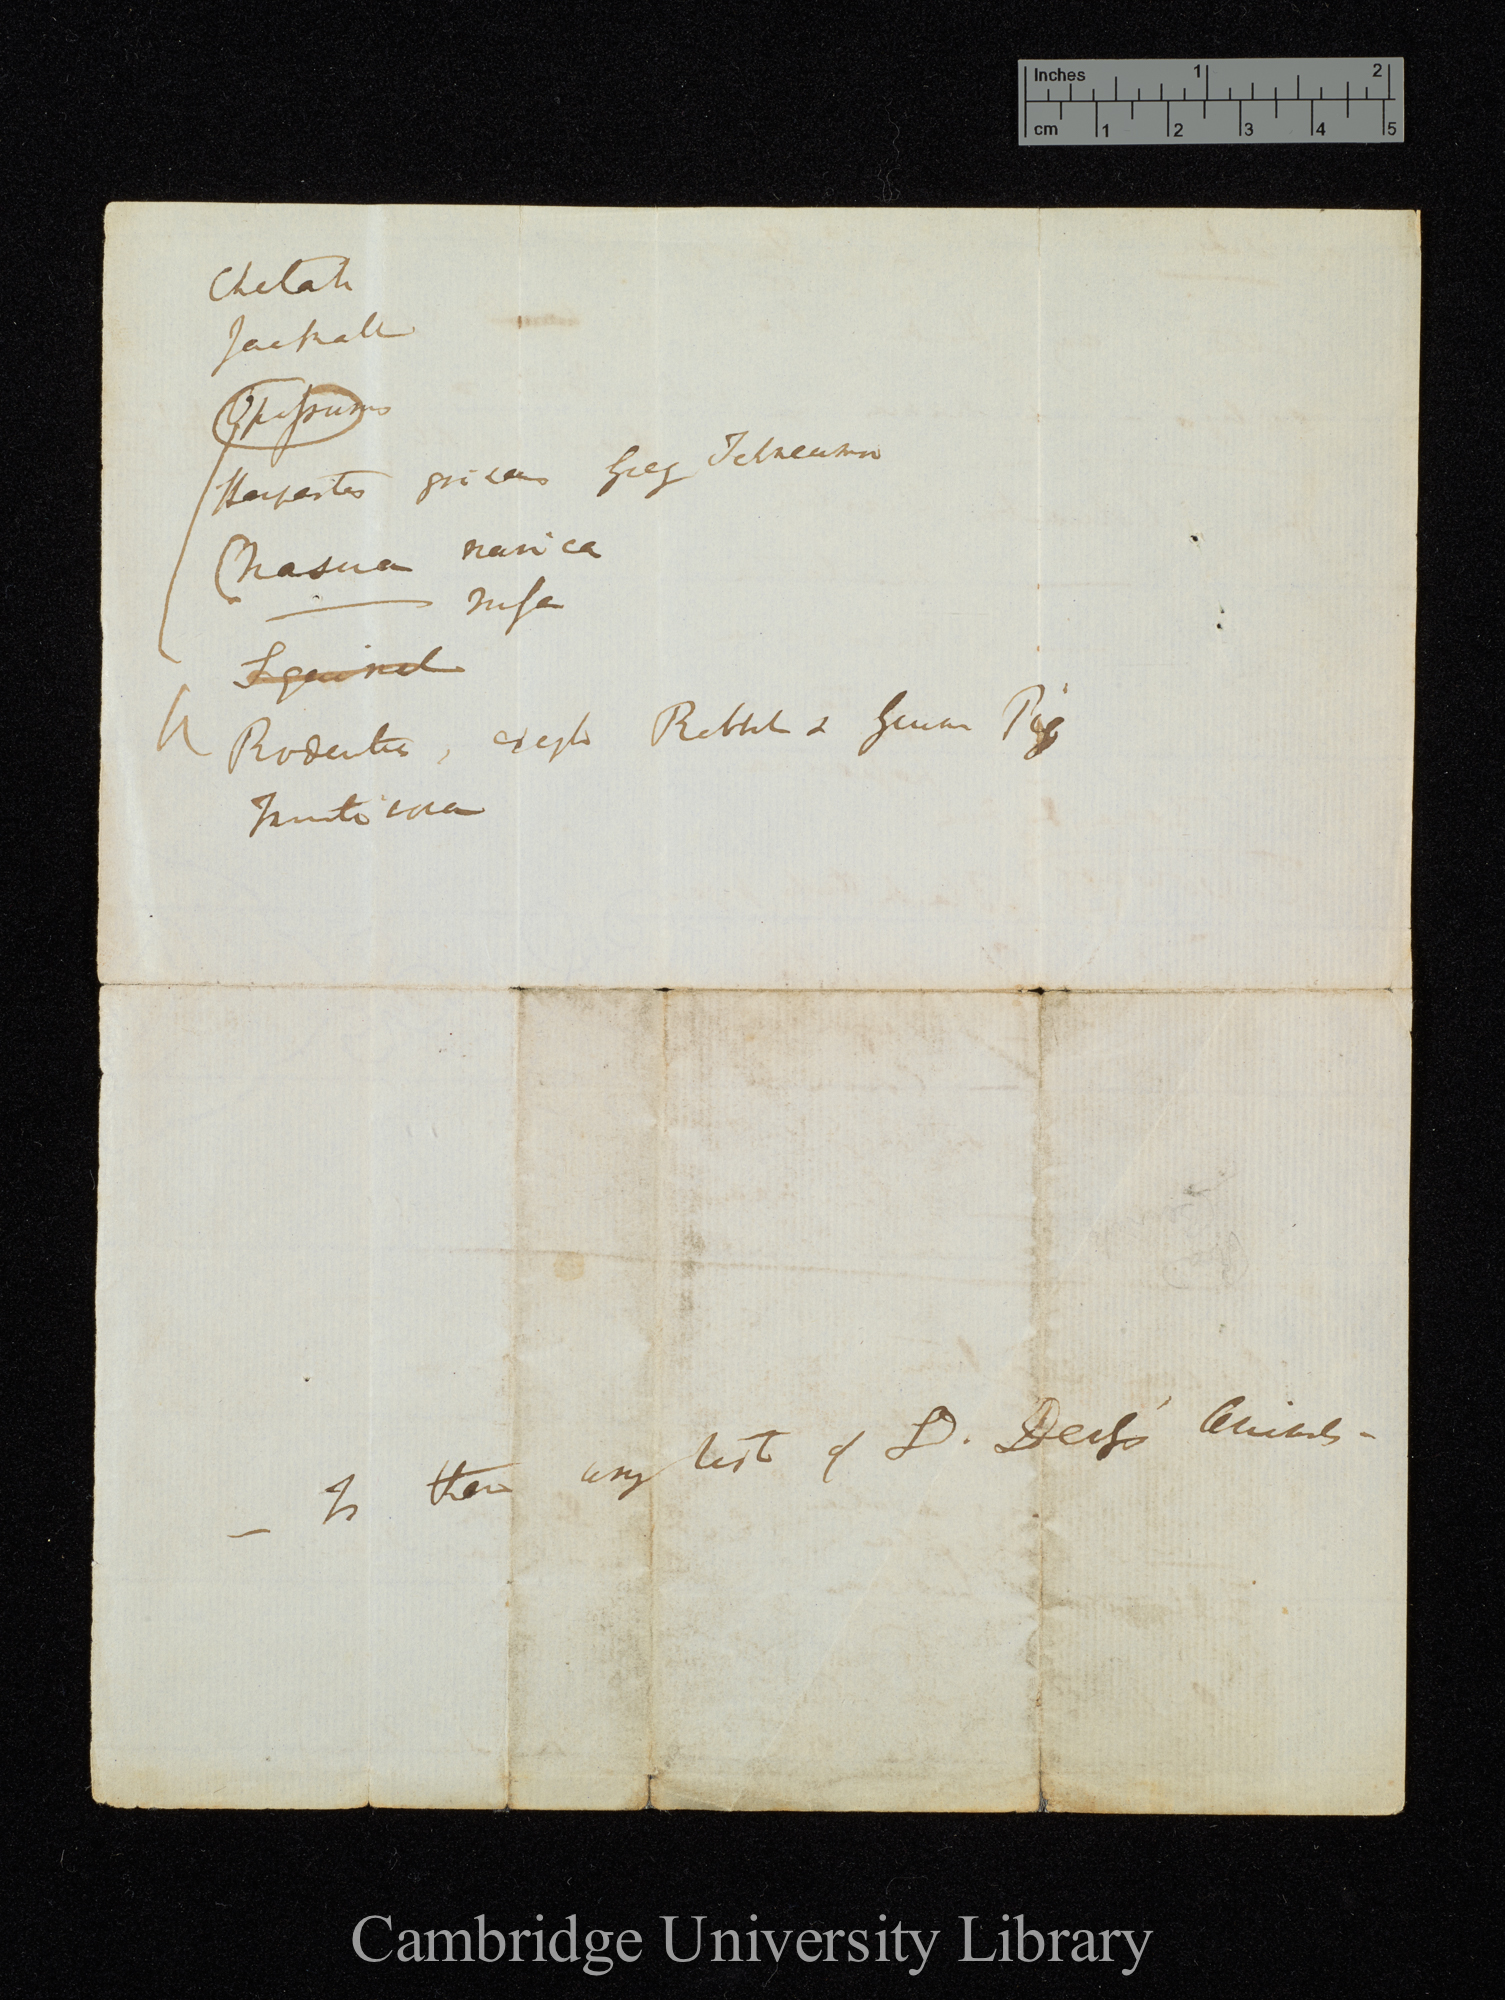 Inches 1 2
cm 1 2 3 4 5
Chetah
Jackall
Opossums
Herpestes griseus Grey Ichneumon
Nasua narica
rufa
Squirrel
Rodentes, except Rabbit & Guinea Pig
— Is there any list of L.D. Derby's Animals –
Cambridge University Library